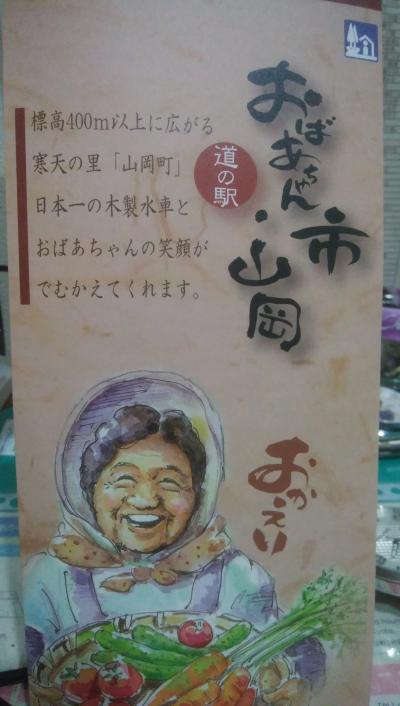 道の駅
おばあちゃん
市・山岡
標高400m以上に広がる
寒天の里「山岡町」
日本一の木製水車と
おばあちゃんの笑顔が
でむかえてくれます。
おかえり